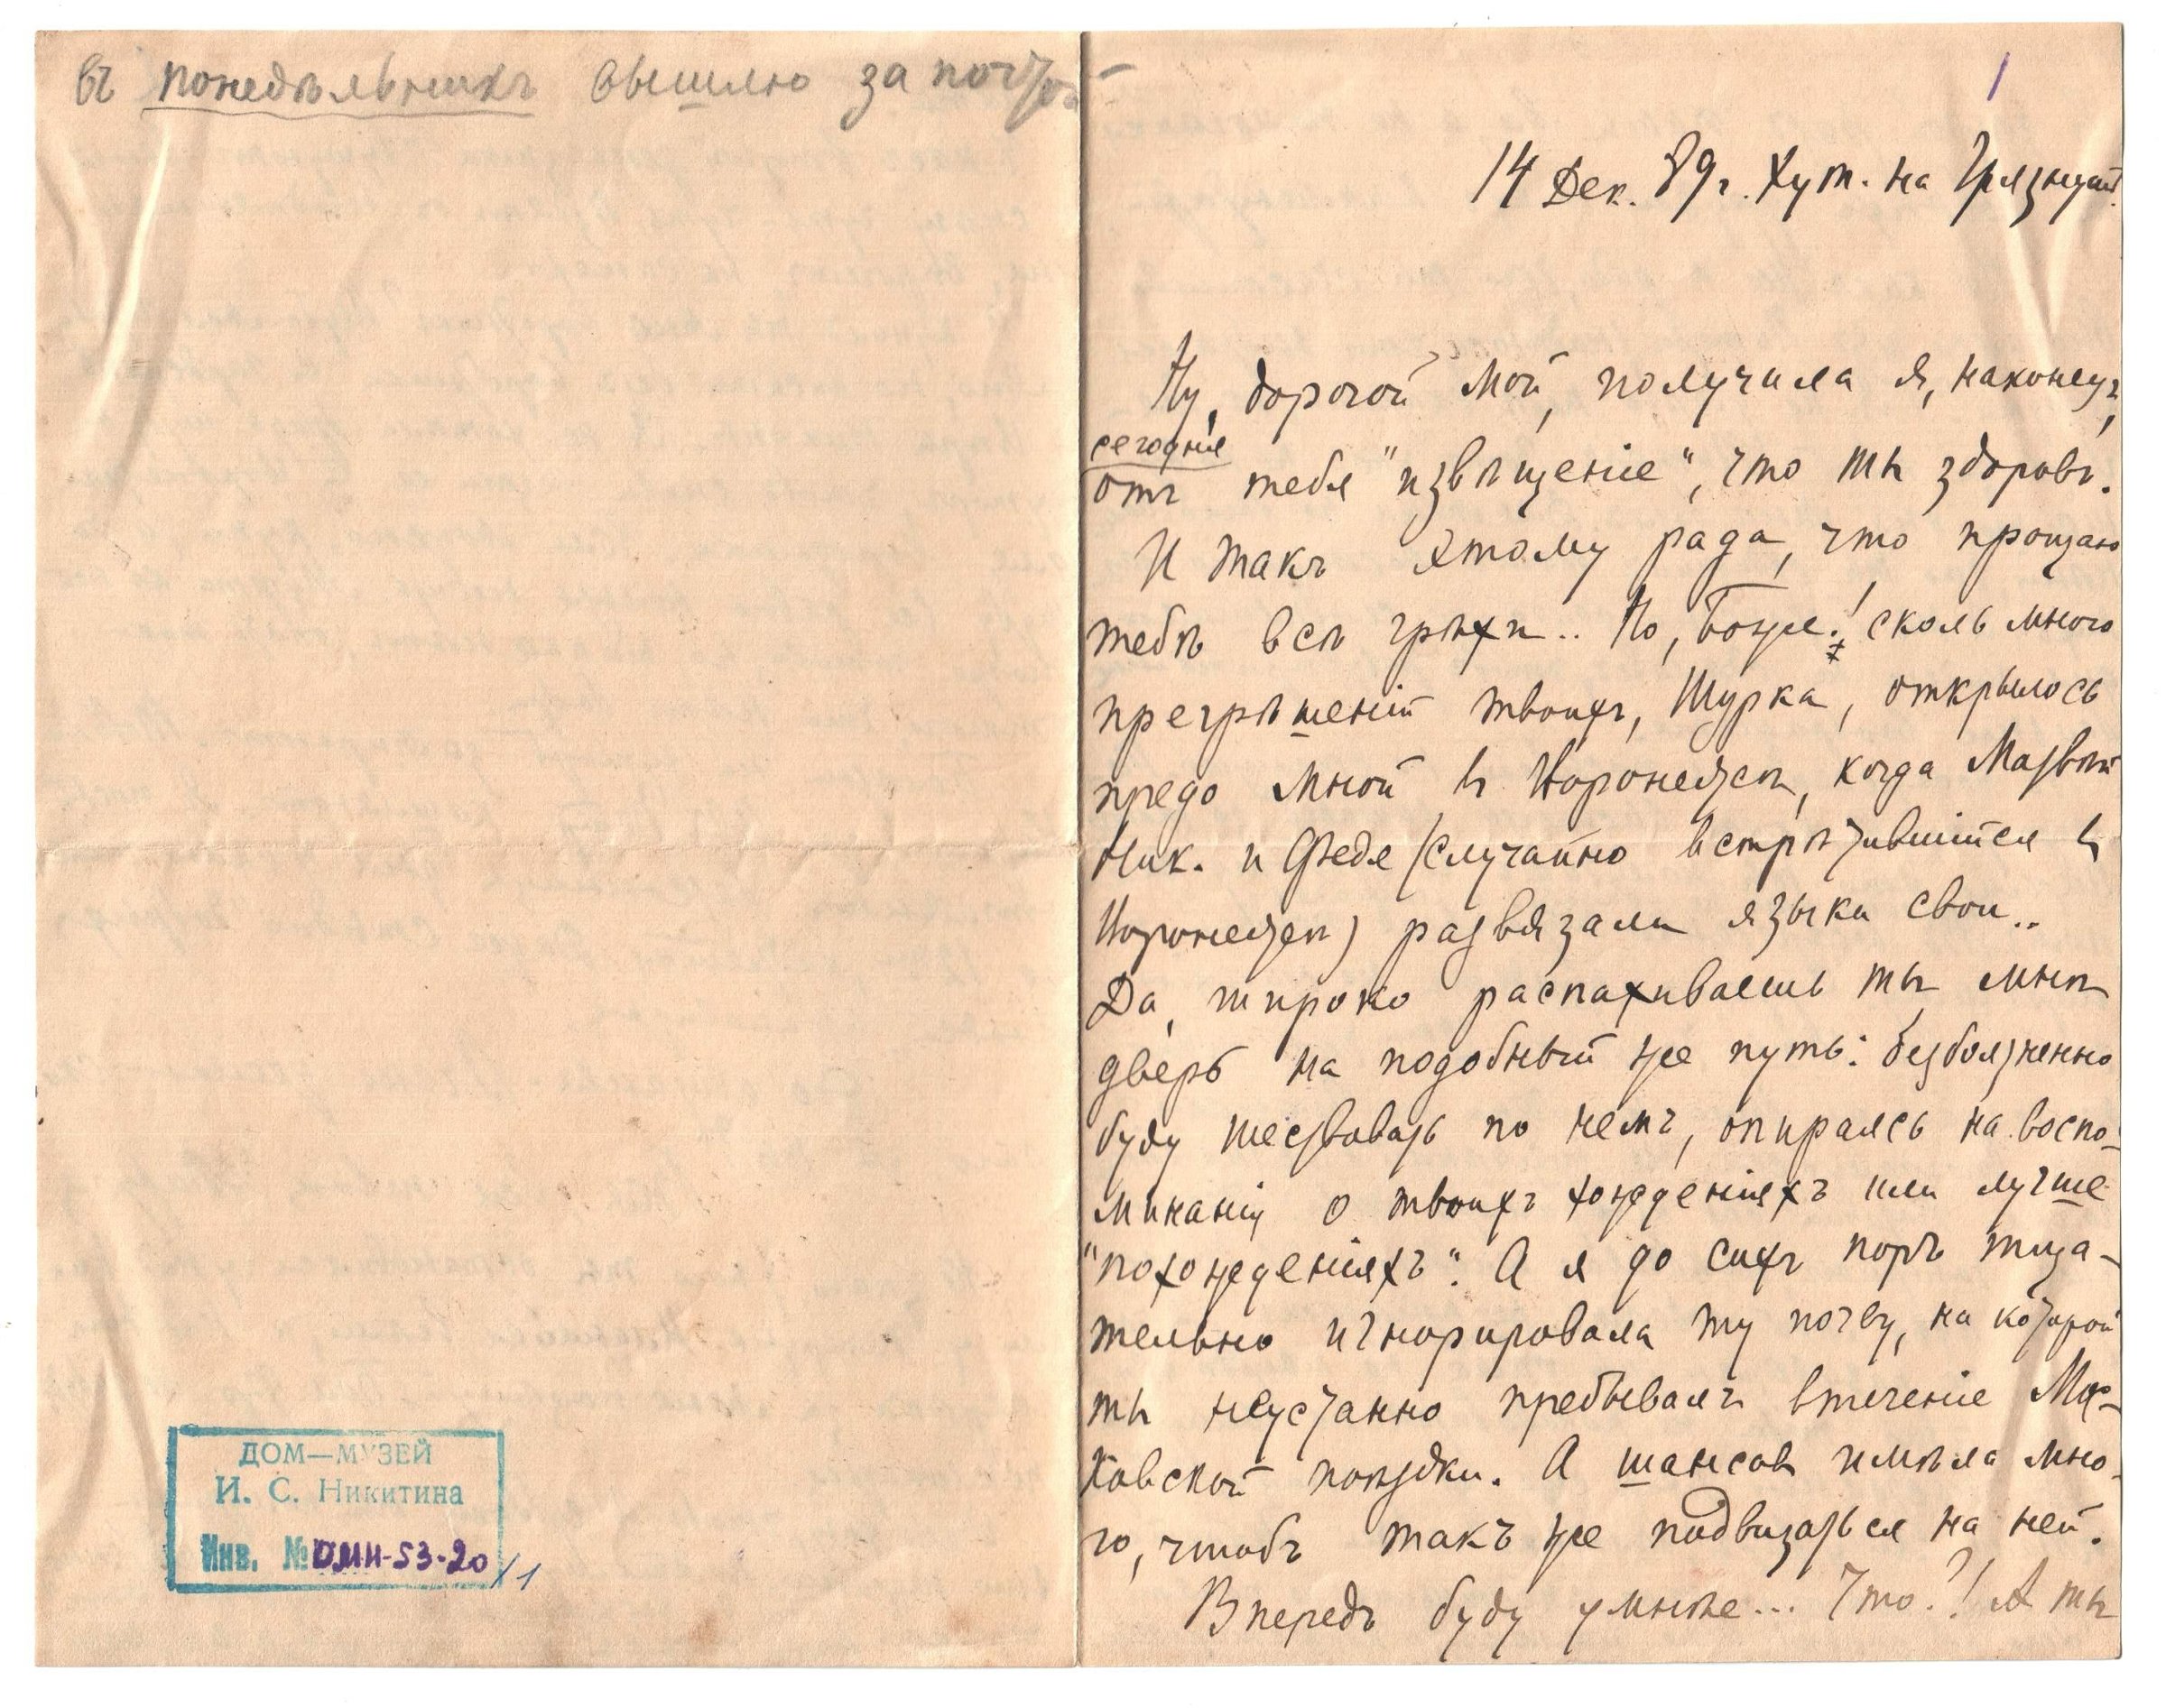 въ понедѣльникъ вышлю за почтой
ДОМ—МУЗЕЙ
И. С. Никитина
Инв. № ОМН-53-20/1
1
14 Дек. 89 г. Хут. на Грязнуш.
Ну, дорогой мой, получила я, наконецъ,
сегодня
отъ тебя "извѣщеніе", что ты здоровъ.
И такъ этому рада, что прощаю
тебѣ всѣ грѣхи.. Но, Боже! сколь много
прегрѣшеній твоихъ, Шурка, открылось
предо мной въ Воронежѣ, когда Матвѣй
Ник. и Федя (случайно встрѣтившійся въ
Воронежѣ) развязали языки свои..
Да, широко распахиваешь ты мнѣ
дверь на подобный же путь: безбоязненно
буду шествовать по немъ, опираясь на воспо-
минанія о твоихъ хожденіяхъ или лучше
"похожденіяхъ". А я до сихъ поръ тща-
тельно игнорировала ту почву, на которой
ты неустанно пребывалъ втеченіе Мос-
ковской поѣздки. А шансовъ имѣла мно-
го, чтобъ такъ же подвизаться на ней.
Впередъ буду умнѣе... Что?! А ты